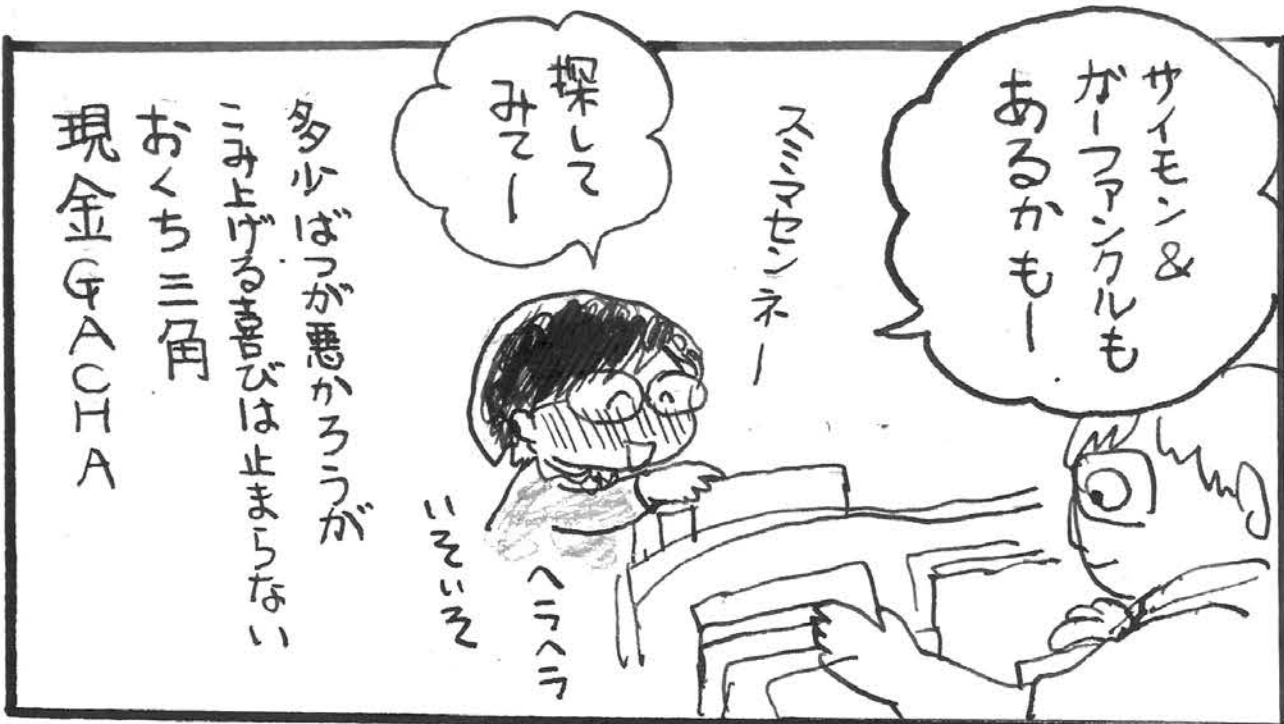 サイモン&
ガーファンクルも
あるかもー
スミマセンネー
探して
みてー
ヘラヘラ
いそいそ
多少ばつが悪かろうが
こみ上げる喜びは止まらない
おくち三角
現金GACHA